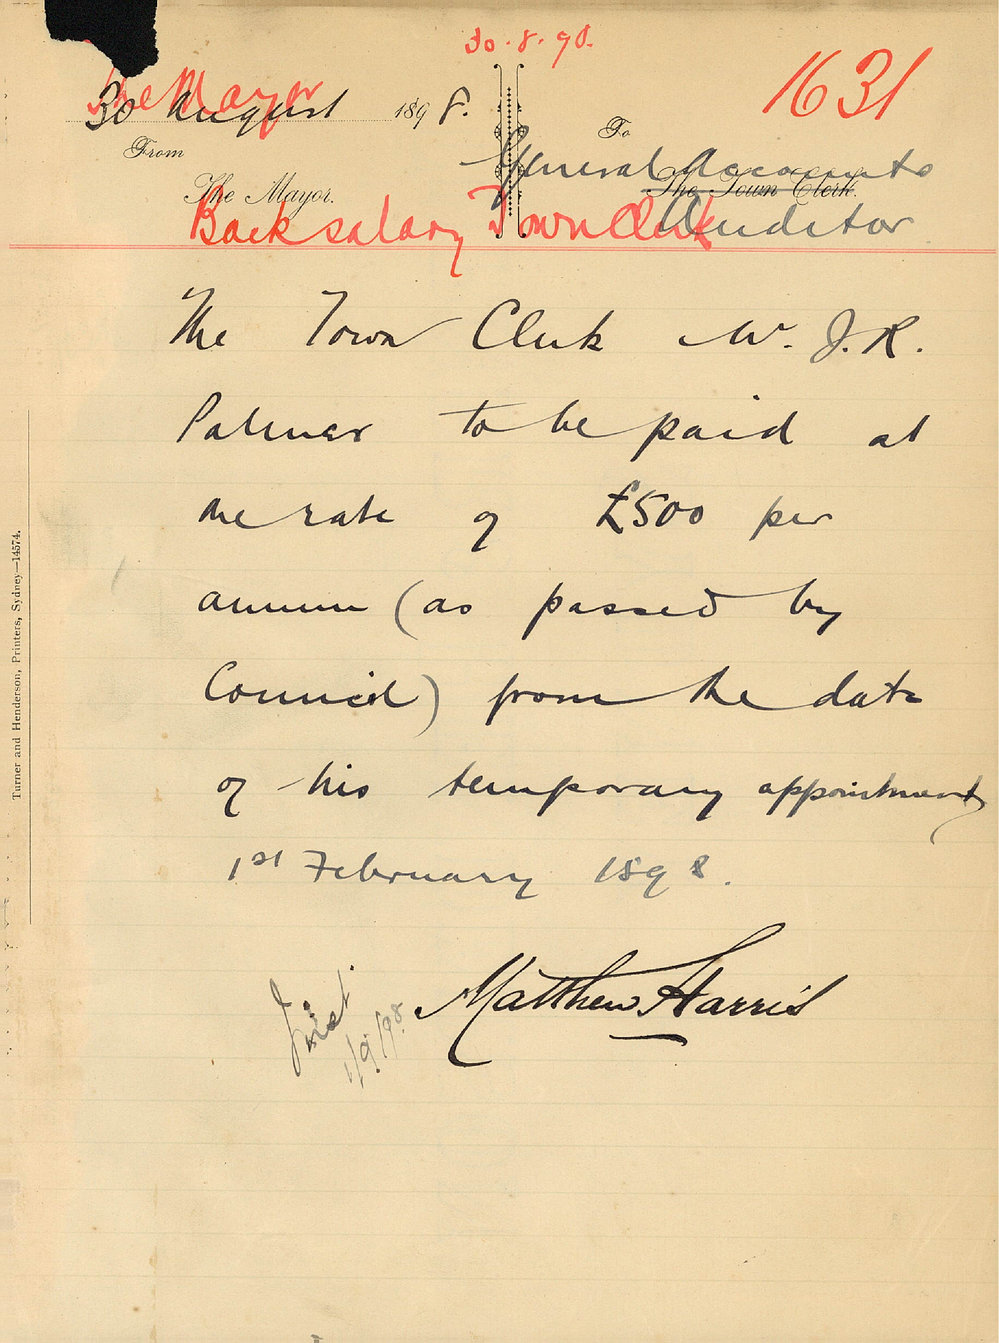 30.8.98.
1631
The Mayor
30 August 1898.
From
The Mayor.
To
General Accounts
The Town Clerk.
Auditor
Back salary Town Clerk
The Town Clerk Mr. J. R.
Palmer to be paid at
the rate of £500 per
annum (as passed by
Council) from the date
of his temporary appointment
1st February 1898.
Matthew Harris
1/9/98
Turner and Henderson, Printers, Sydney—14574.